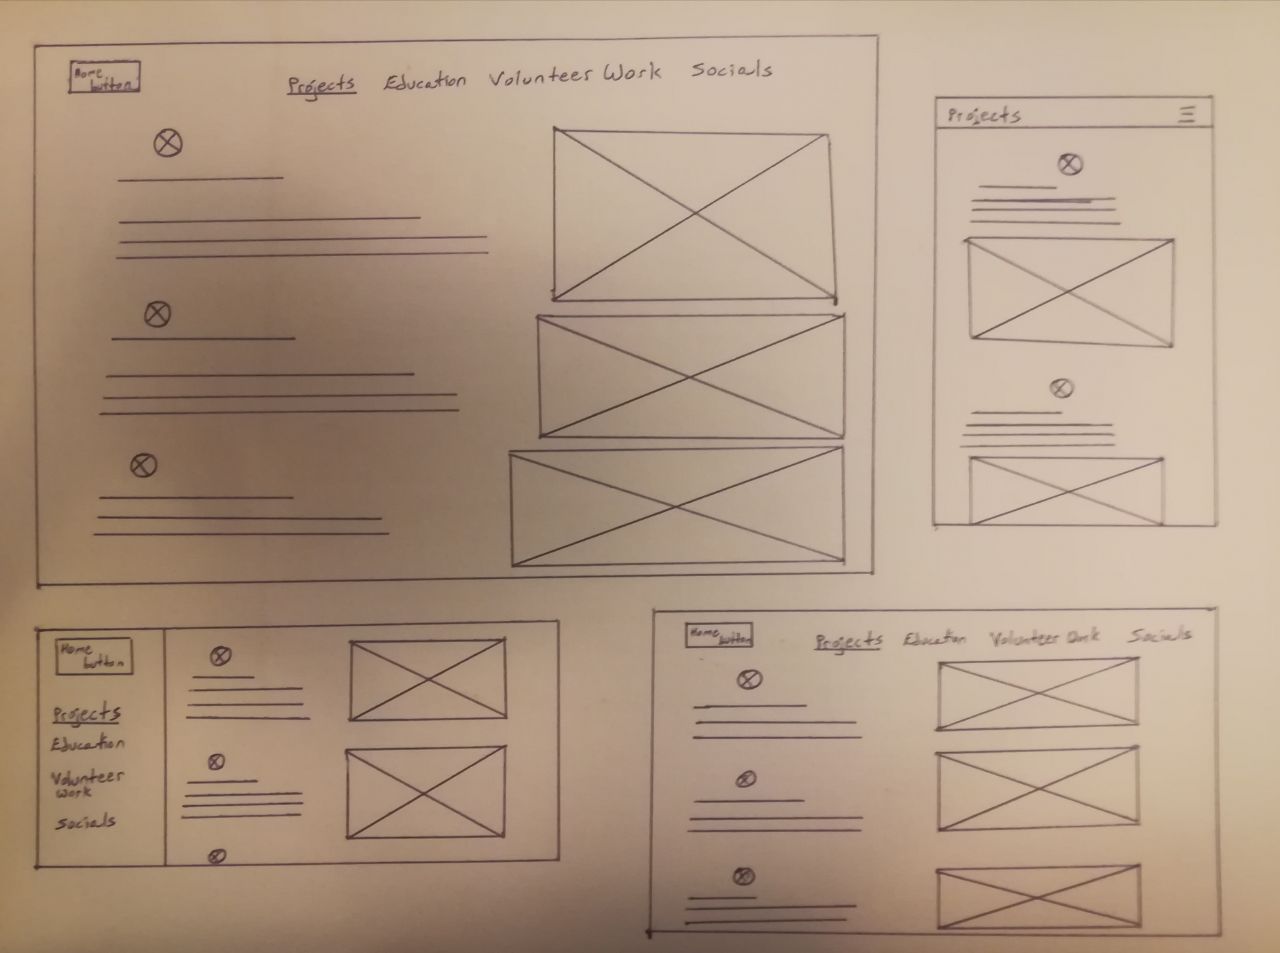 Home
button
Projects Education Volunteer Work Socials
Projects
Home
button
Projects
Education
Volunteer
work
Socials
Home
button
Projects Education Volunteer Work Socials